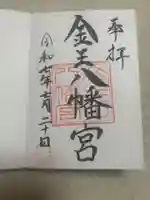 奉拝
金王八幡宮
令和七年六月二十日